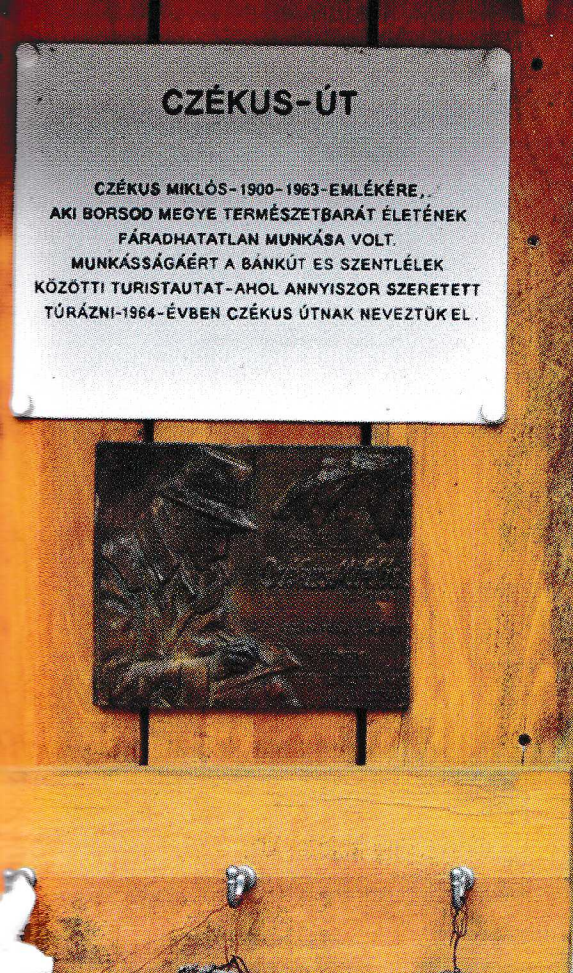 CZÉKUS-ÚT
CZÉKUS MIKLÓS-1900-1963-EMLÉKÉRE,
AKI BORSOD MEGYE TERMÉSZETBARÁT ÉLETÉNEK
FÁRADHATATLAN MUNKÁSA VOLT.
MUNKÁSSÁGÁÉRT A BÁNKÚT ES SZENTLÉLEK
KÖZÖTTI TURISTAUTAT-AHOL ANNYISZOR SZERETETT
TÚRÁZNI-1964-ÉVBEN CZÉKUS ÚTNAK NEVEZTÜK EL.